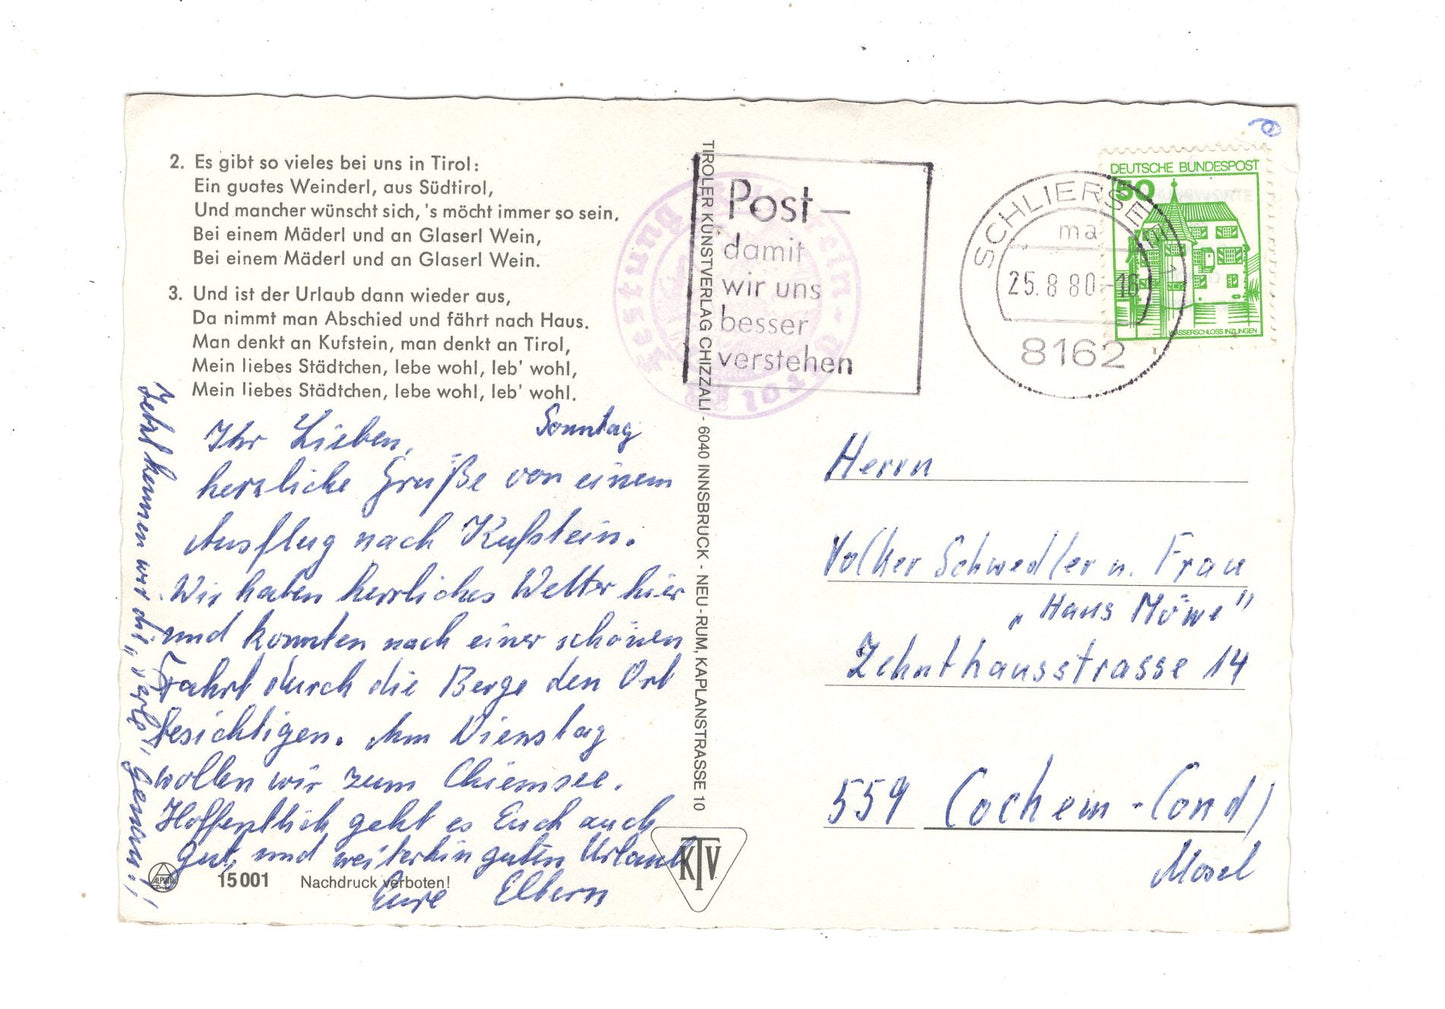 2. Es gibt so vieles bei uns in Tirol:
Ein guates Weinderl, aus Südtirol,
Und mancher wünscht sich, 's möcht immer so sein,
Bei einem Mäderl und an Glaserl Wein,
Bei einem Mäderl und an Glaserl Wein.
3. Und ist der Urlaub dann wieder aus,
Da nimmt man Abschied und fährt nach Haus.
Man denkt an Kufstein, man denkt an Tirol,
Mein liebes Städtchen, lebe wohl, leb' wohl,
Mein liebes Städtchen, lebe wohl, leb' wohl.
Sonntag
Ihr Lieben,
herzliche Grüße von einem
Ausflug nach Kufstein.
Wir haben herrliches Wetter hier
und konnten nach einer schönen
Fahrt durch die Berge den Ort
besichtigen. Am Dienstag
wollen wir zum Chiemsee.
Hoffentlich geht es Euch auch
gut, und weiterhin guten Urlaub
Eure Eltern
Jetzt kennen wir die „Perle" genau!!
15001 Nachdruck verboten!
TIROLER KUNSTVERLAG CHIZZALI - 6040 INNSBRUCK - NEU-RUM, KAPLANSTRASSE 10
KTV
Festung Kufstein - Tirol
Post -
damit
wir uns
besser
verstehen
SCHLIERSEE 1
ma
25.8.80-16
8162
DEUTSCHE BUNDESPOST
50
WASSERSCHLOSS INZLINGEN
Herrn
Volker Schwedler u. Frau
„Haus Möwe"
Zehnthausstrasse 14
559 Cochem-Cond/
Mosel